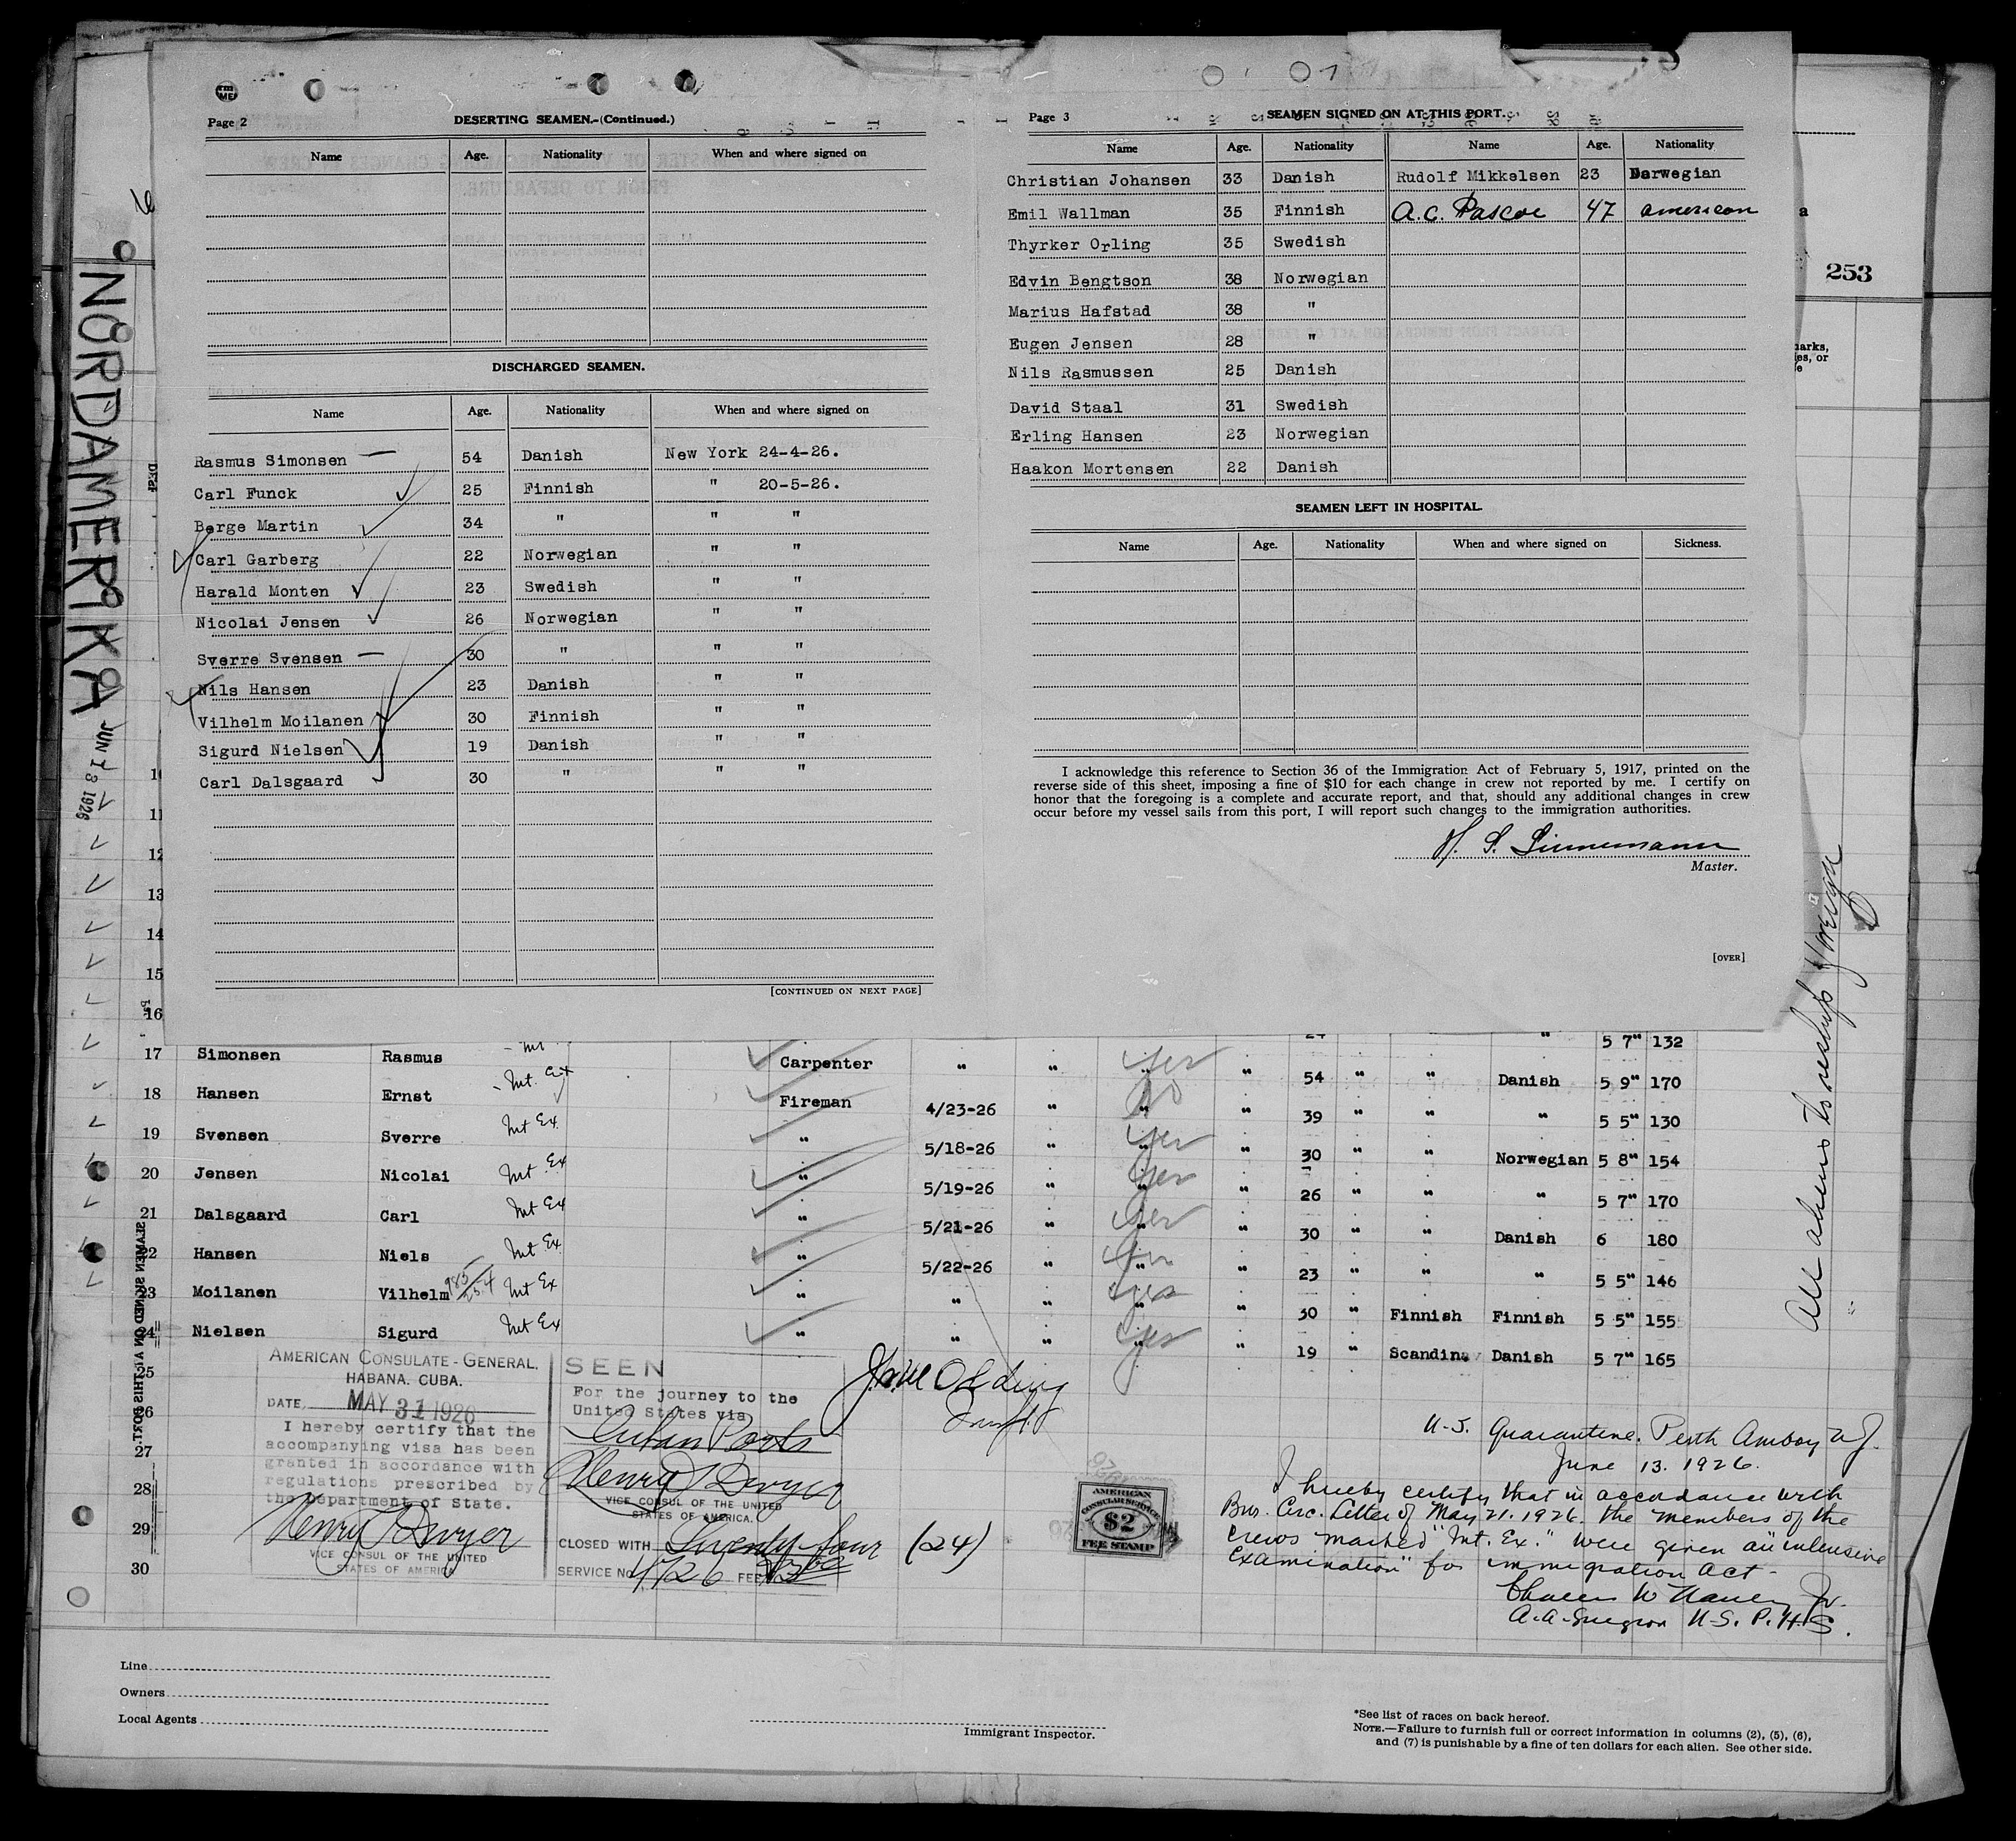 NORDAMERIKA
JUN 13 1926
Page 2
DESERTING SEAMEN.-(Continued.)
Name Age. Nationality When and where signed on
DISCHARGED SEAMEN.
Name Age. Nationality When and where signed on
Rasmus Simonsen — 54 Danish New York 24-4-26.
Carl Funck 25 Finnish " 20-5-26.
Berge Martin 34 " " "
Carl Garberg 22 Norwegian " "
Harald Monten 23 Swedish " "
Nicolai Jensen 26 Norwegian " "
Sverre Svensen — 30 " " "
Nils Hansen 23 Danish " "
Vilhelm Moilanen 30 Finnish " "
Sigurd Nielsen 19 Danish " "
Carl Dalsgaard 30 " " "
[CONTINUED ON NEXT PAGE]
Page 3
SEAMEN SIGNED ON AT THIS PORT.
Name Age. Nationality Name Age. Nationality
Christian Johansen 33 Danish Rudolf Mikkelsen 23 Norwegian
Emil Wallman 35 Finnish A.C. Pascoe 47 american
Thyrker Orling 35 Swedish
Edvin Bengtson 38 Norwegian
Marius Hafstad 38 "
Eugen Jensen 28 "
Nils Rasmussen 25 Danish
David Staal 31 Swedish
Erling Hansen 23 Norwegian
Haakon Mortensen 22 Danish
SEAMEN LEFT IN HOSPITAL.
Name Age. Nationality When and where signed on Sickness.
I acknowledge this reference to Section 36 of the Immigration Act of February 5, 1917, printed on the
reverse side of this sheet, imposing a fine of $10 for each change in crew not reported by me. I certify on
honor that the foregoing is a complete and accurate report, and that, should any additional changes in crew
occur before my vessel sails from this port, I will report such changes to the immigration authorities.
Master.
[OVER]
253
arks,
es, or
e
10
11
12
13
14
15
16 24 " 5 7" 132
17 Simonsen Rasmus Carpenter " " yes " 54 " " Danish 5 9" 170
18 Hansen Ernst Int. Ex Fireman 4/23-26 " " No " 39 " " " 5 5" 130
19 Svensen Sverre Int Ex. " 5/18-26 " " yes " 30 " " Norwegian 5 8" 154
20 Jensen Nicolai Int Ex " 5/19-26 " " yes " 26 " " " 5 7" 170
21 Dalsgaard Carl Int Ex " 5/21-26 " " yes " 30 " " Danish 6 180
22 Hansen Niels Int Ex " 5/22-26 " " yes " 23 " " " 5 5" 146
23 Moilanen Vilhelm Int Ex " " " " yes " 30 " Finnish Finnish 5 5" 155
24 Nielsen Sigurd Int Ex " " " " yes " 19 " Scandina Danish 5 7" 165
25
26
27
28
29
30
SEAMEN SIGNED ON AT THIS PORT
All aliens to reship foreign
AMERICAN CONSULATE-GENERAL,
HABANA. CUBA.
DATE, MAY 31 1926
I hereby certify that the
accompanying visa has been
granted in accordance with
regulations prescribed by
the Department of State.
Henry Dwyer
VICE CONSUL OF THE UNITED
STATES OF AMERICA
SEEN
For the journey to the
United States via
Cuban Ports
Henry Dwyer
VICE CONSUL OF THE UNITED
STATES OF AMERICA.
CLOSED WITH Twenty-four (24)
SERVICE No. 4726 FEE
AMERICAN
CONSULAR SERVICE
$2
FEE STAMP
U.S. Quarantine. Perth Amboy NJ.
June 13. 1926.
I hereby certify that in accordance with
Bur. Circ. Letter of May 21. 1926. the members of the
crews marked "Int. Ex." were given an "intensive
examination" for immigration act.
A.A. Surgeon U.S. P.H.S.
Line
Owners
Local Agents
Immigrant Inspector.
*See list of races on back hereof.
NOTE.—Failure to furnish full or correct information in columns (2), (5), (6),
and (7) is punishable by a fine of ten dollars for each alien. See other side.